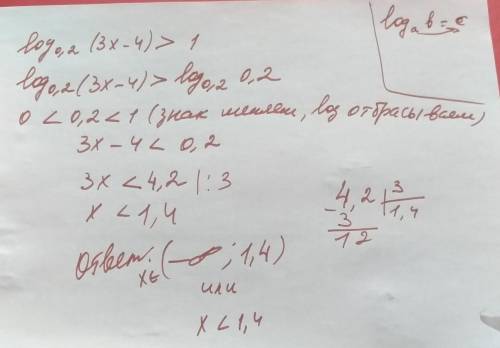 log₀,₂ (3x-4) > 1
logₐ b = c
log₀,₂ (3x-4) > log₀,₂ 0,2
0 < 0,2 < 1 (знак меняем, log отбрасываем)
3x-4 < 0,2
3x < 4,2 | : 3
x < 1,4
4,2 | 3
-3 | 1,4
12
Ответ: x∈ (-∞; 1,4)
или
x < 1,4